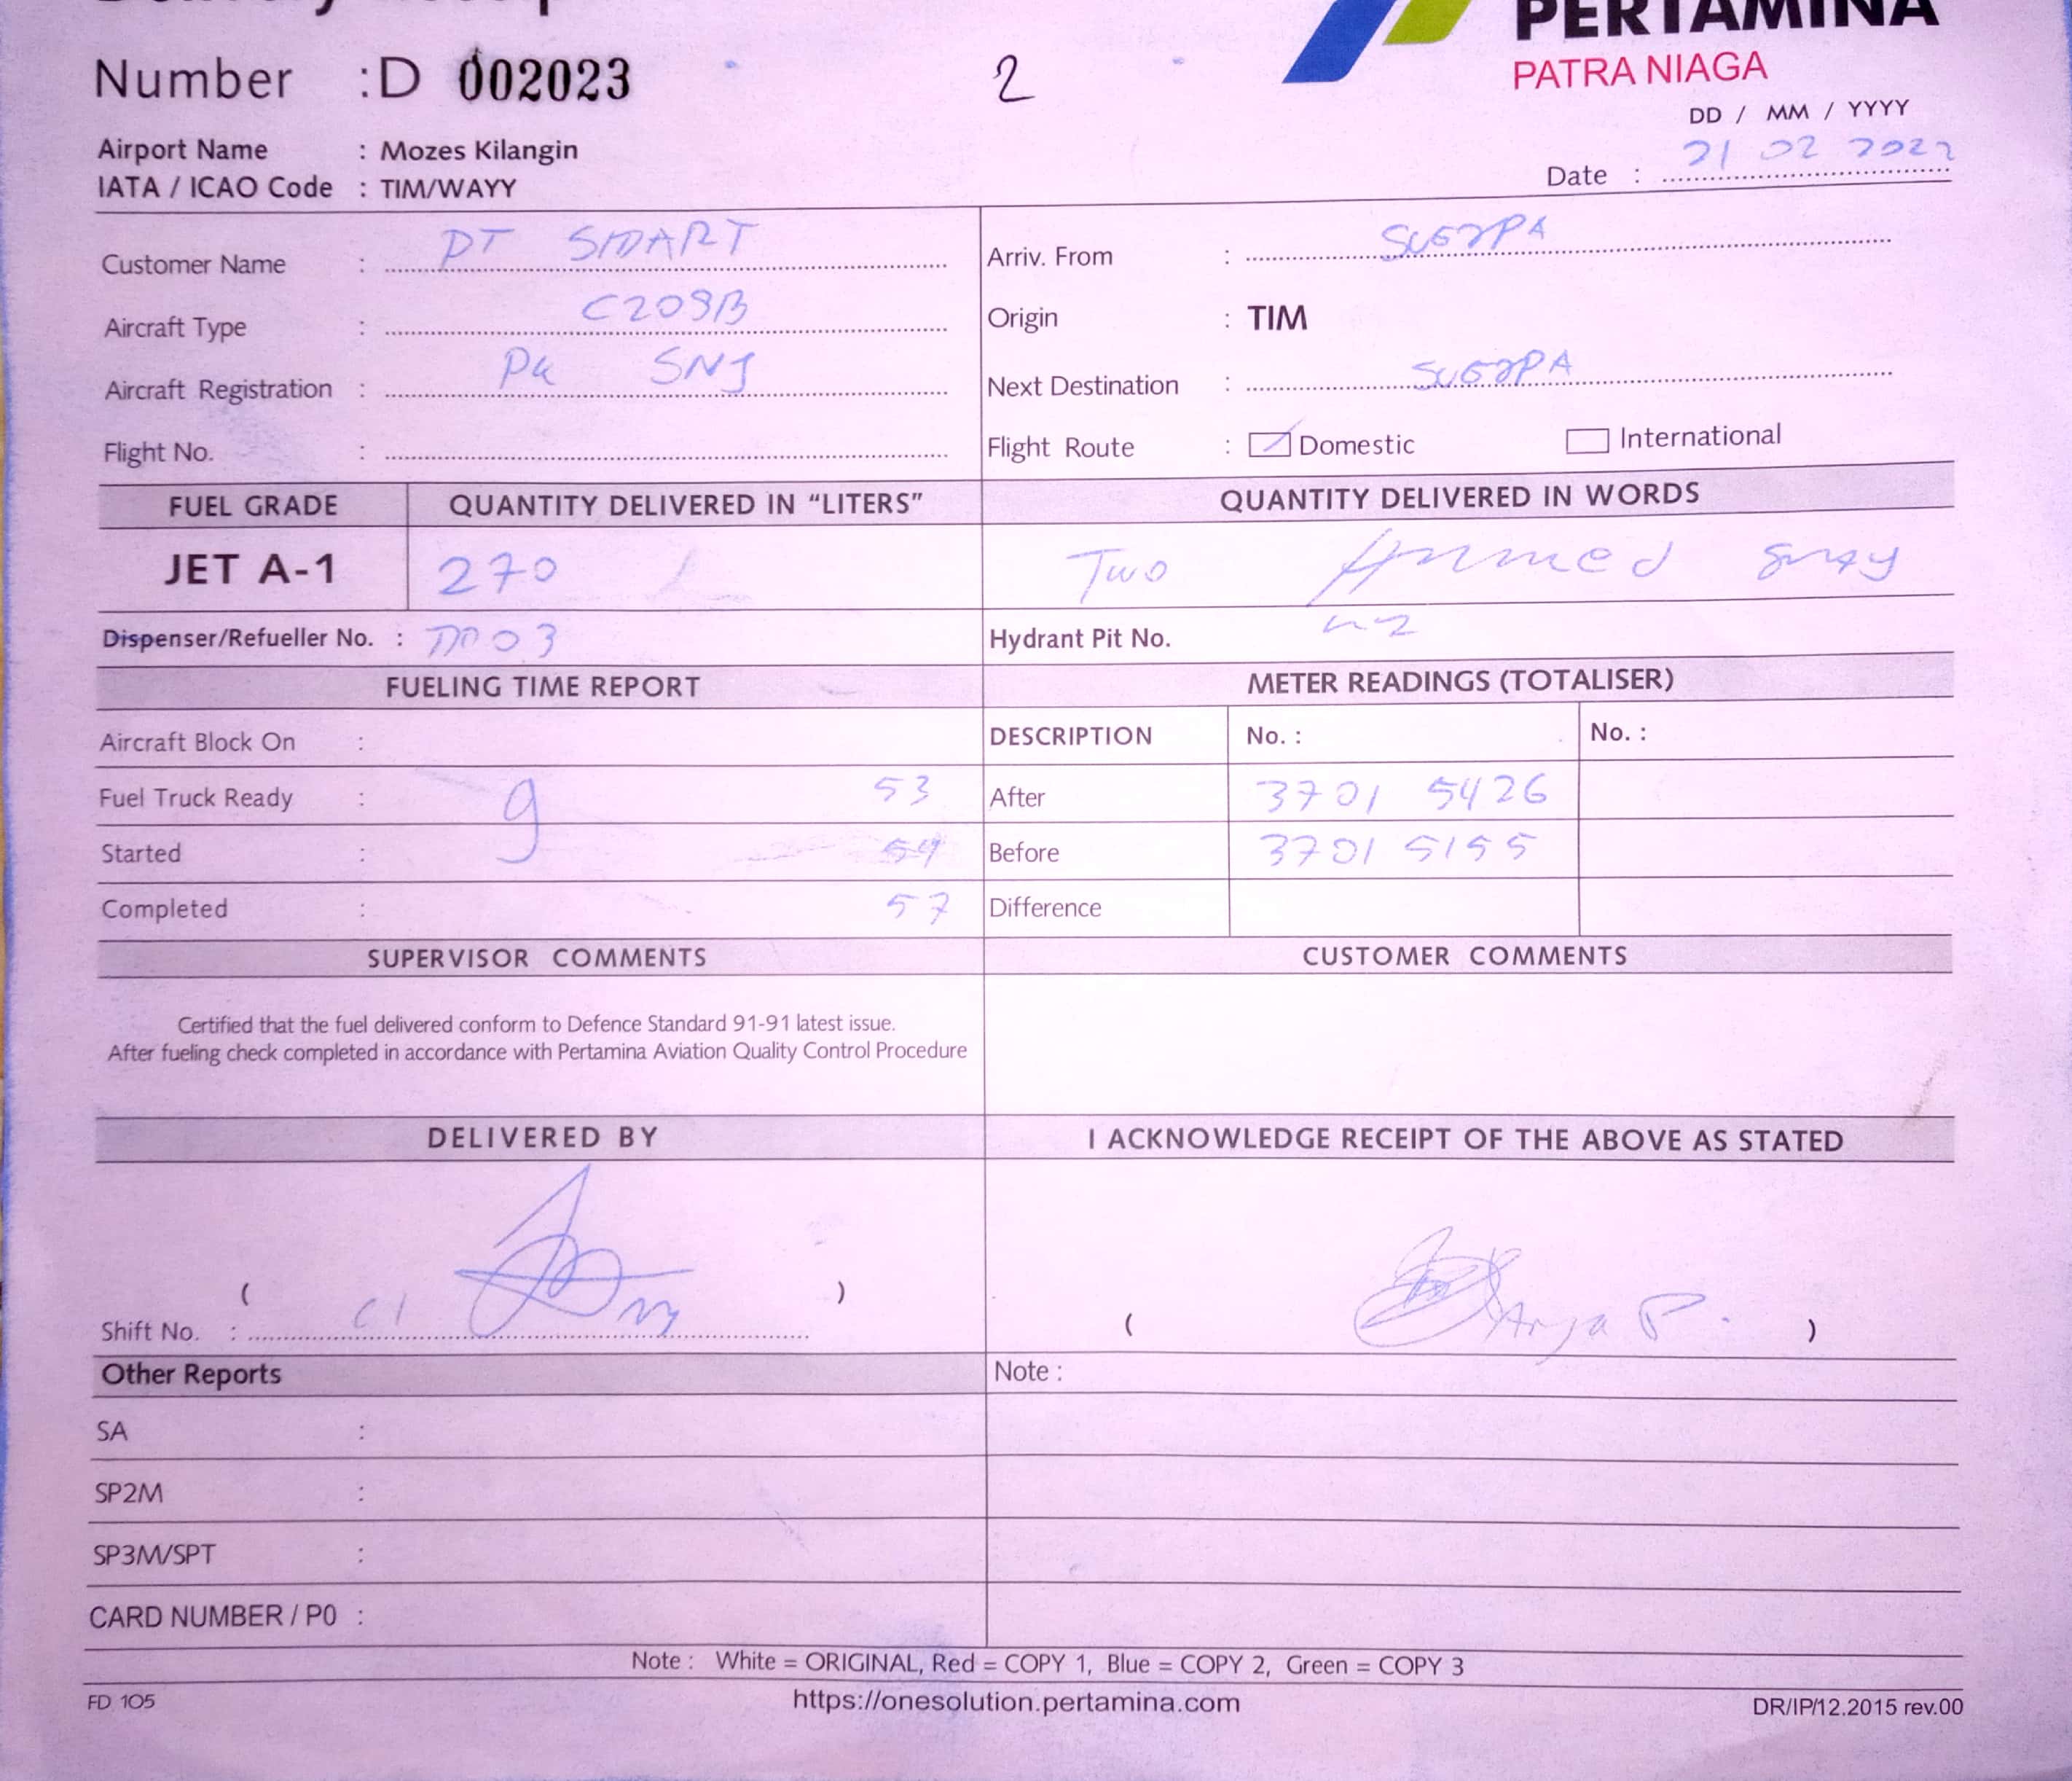 Delivery Receip
PERTAMINA
PATRA NIAGA
Number : D 002023
2
DD / MM / YYYY
Airport Name : Mozes Kilangin
Date : 21 02 2022
IATA / ICAO Code : TIM/WAYY
Customer Name : PT SMART
Arriv. From :
Aircraft Type : C208B
Origin : TIM
Aircraft Registration : PK SNJ
Next Destination :
Flight No. :
Flight Route : Domestic International
FUEL GRADE QUANTITY DELIVERED IN “LITERS” QUANTITY DELIVERED IN WORDS
JET A-1 270 Two
Dispenser/Refueller No. : Hydrant Pit No.
FUELING TIME REPORT METER READINGS (TOTALISER)
Aircraft Block On : DESCRIPTION No. : No. :
Fuel Truck Ready : 9 53 After 3701 5426
Started : 54 Before 3701 5155
Completed : 57 Difference
SUPERVISOR COMMENTS CUSTOMER COMMENTS
Certified that the fuel delivered conform to Defence Standard 91-91 latest issue.
After fueling check completed in accordance with Pertamina Aviation Quality Control Procedure
DELIVERED BY I ACKNOWLEDGE RECEIPT OF THE ABOVE AS STATED
( )
Shift No. :
( Arya P. )
Other Reports Note :
SA :
SP2M :
SP3M/SPT :
CARD NUMBER / P0 :
Note : White = ORIGINAL, Red = COPY 1, Blue = COPY 2, Green = COPY 3
FD 105 https://onesolution.pertamina.com DR/IP/12.2015 rev.00